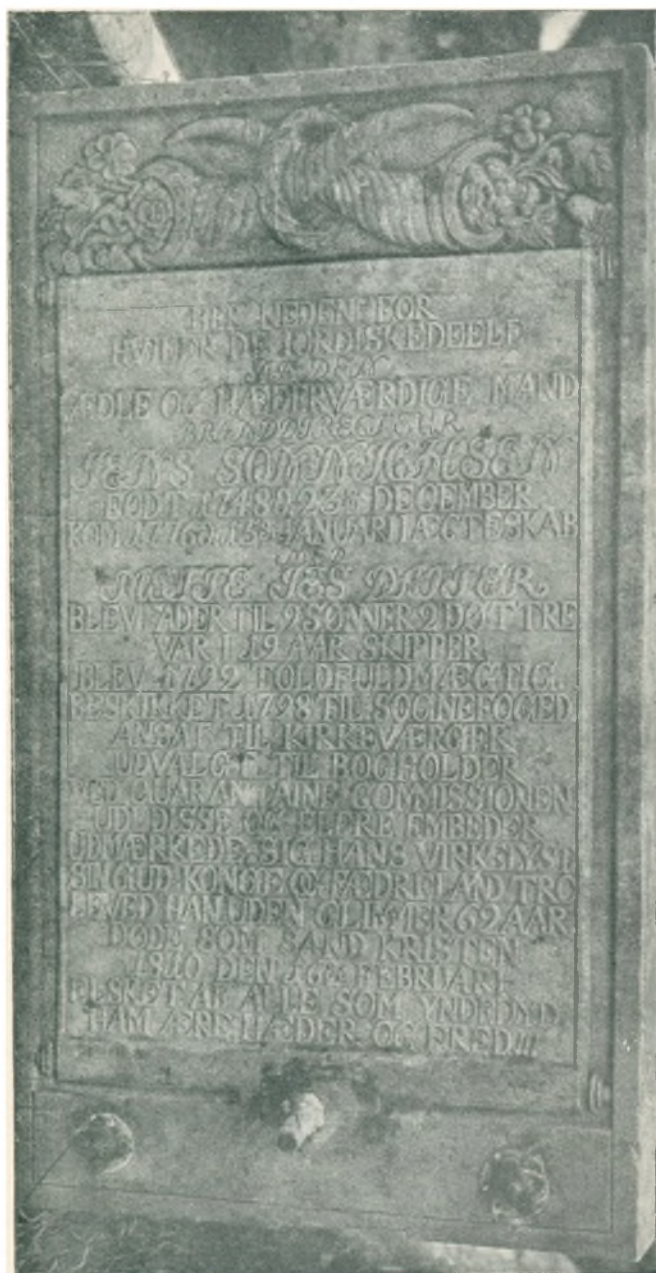 HER NEDENFOR
HVILER DE IORDISKE DEELE
AF DEN
ÆDLE OG HÆDERVÆRDIGE MAND
BRANDDIRECTEUR
JENS SÖNNICHSEN
FÖDT 1748 D 23de DECEMBER
KOM 1776 d 15de JANUARI I ÆGTESKAB
MED
METTE JES DATTER
BLEV FADER TIL 9 SÖNNER 2 DØTTRE
VAR I 19 AAR SKIPPER
BLEV 1792 TOLDFULDMÆGTIG
BESKIKKET 1798 TIL SOGNEFOGED
ANSAT TIL KIRKEVÆRGER
UDVALGT TIL BOGHOLDER
VED QUARANTAINE COMMISSIONEN
UDI DISSE OG FLERE EMBEDER
UDMÆRKEDE SIG HANS VIRKSLYST
SIN GUD KONGE OG FÆDRELAND TRO
LEVED HAN UDEN GLIMMER 62 AAR
DØDE SOM SAND KRISTEN
1810 DEN 16de FEBRUARI
ELSKET AF ALLE SOM
HAM ÆRE HÆDER OG FRED